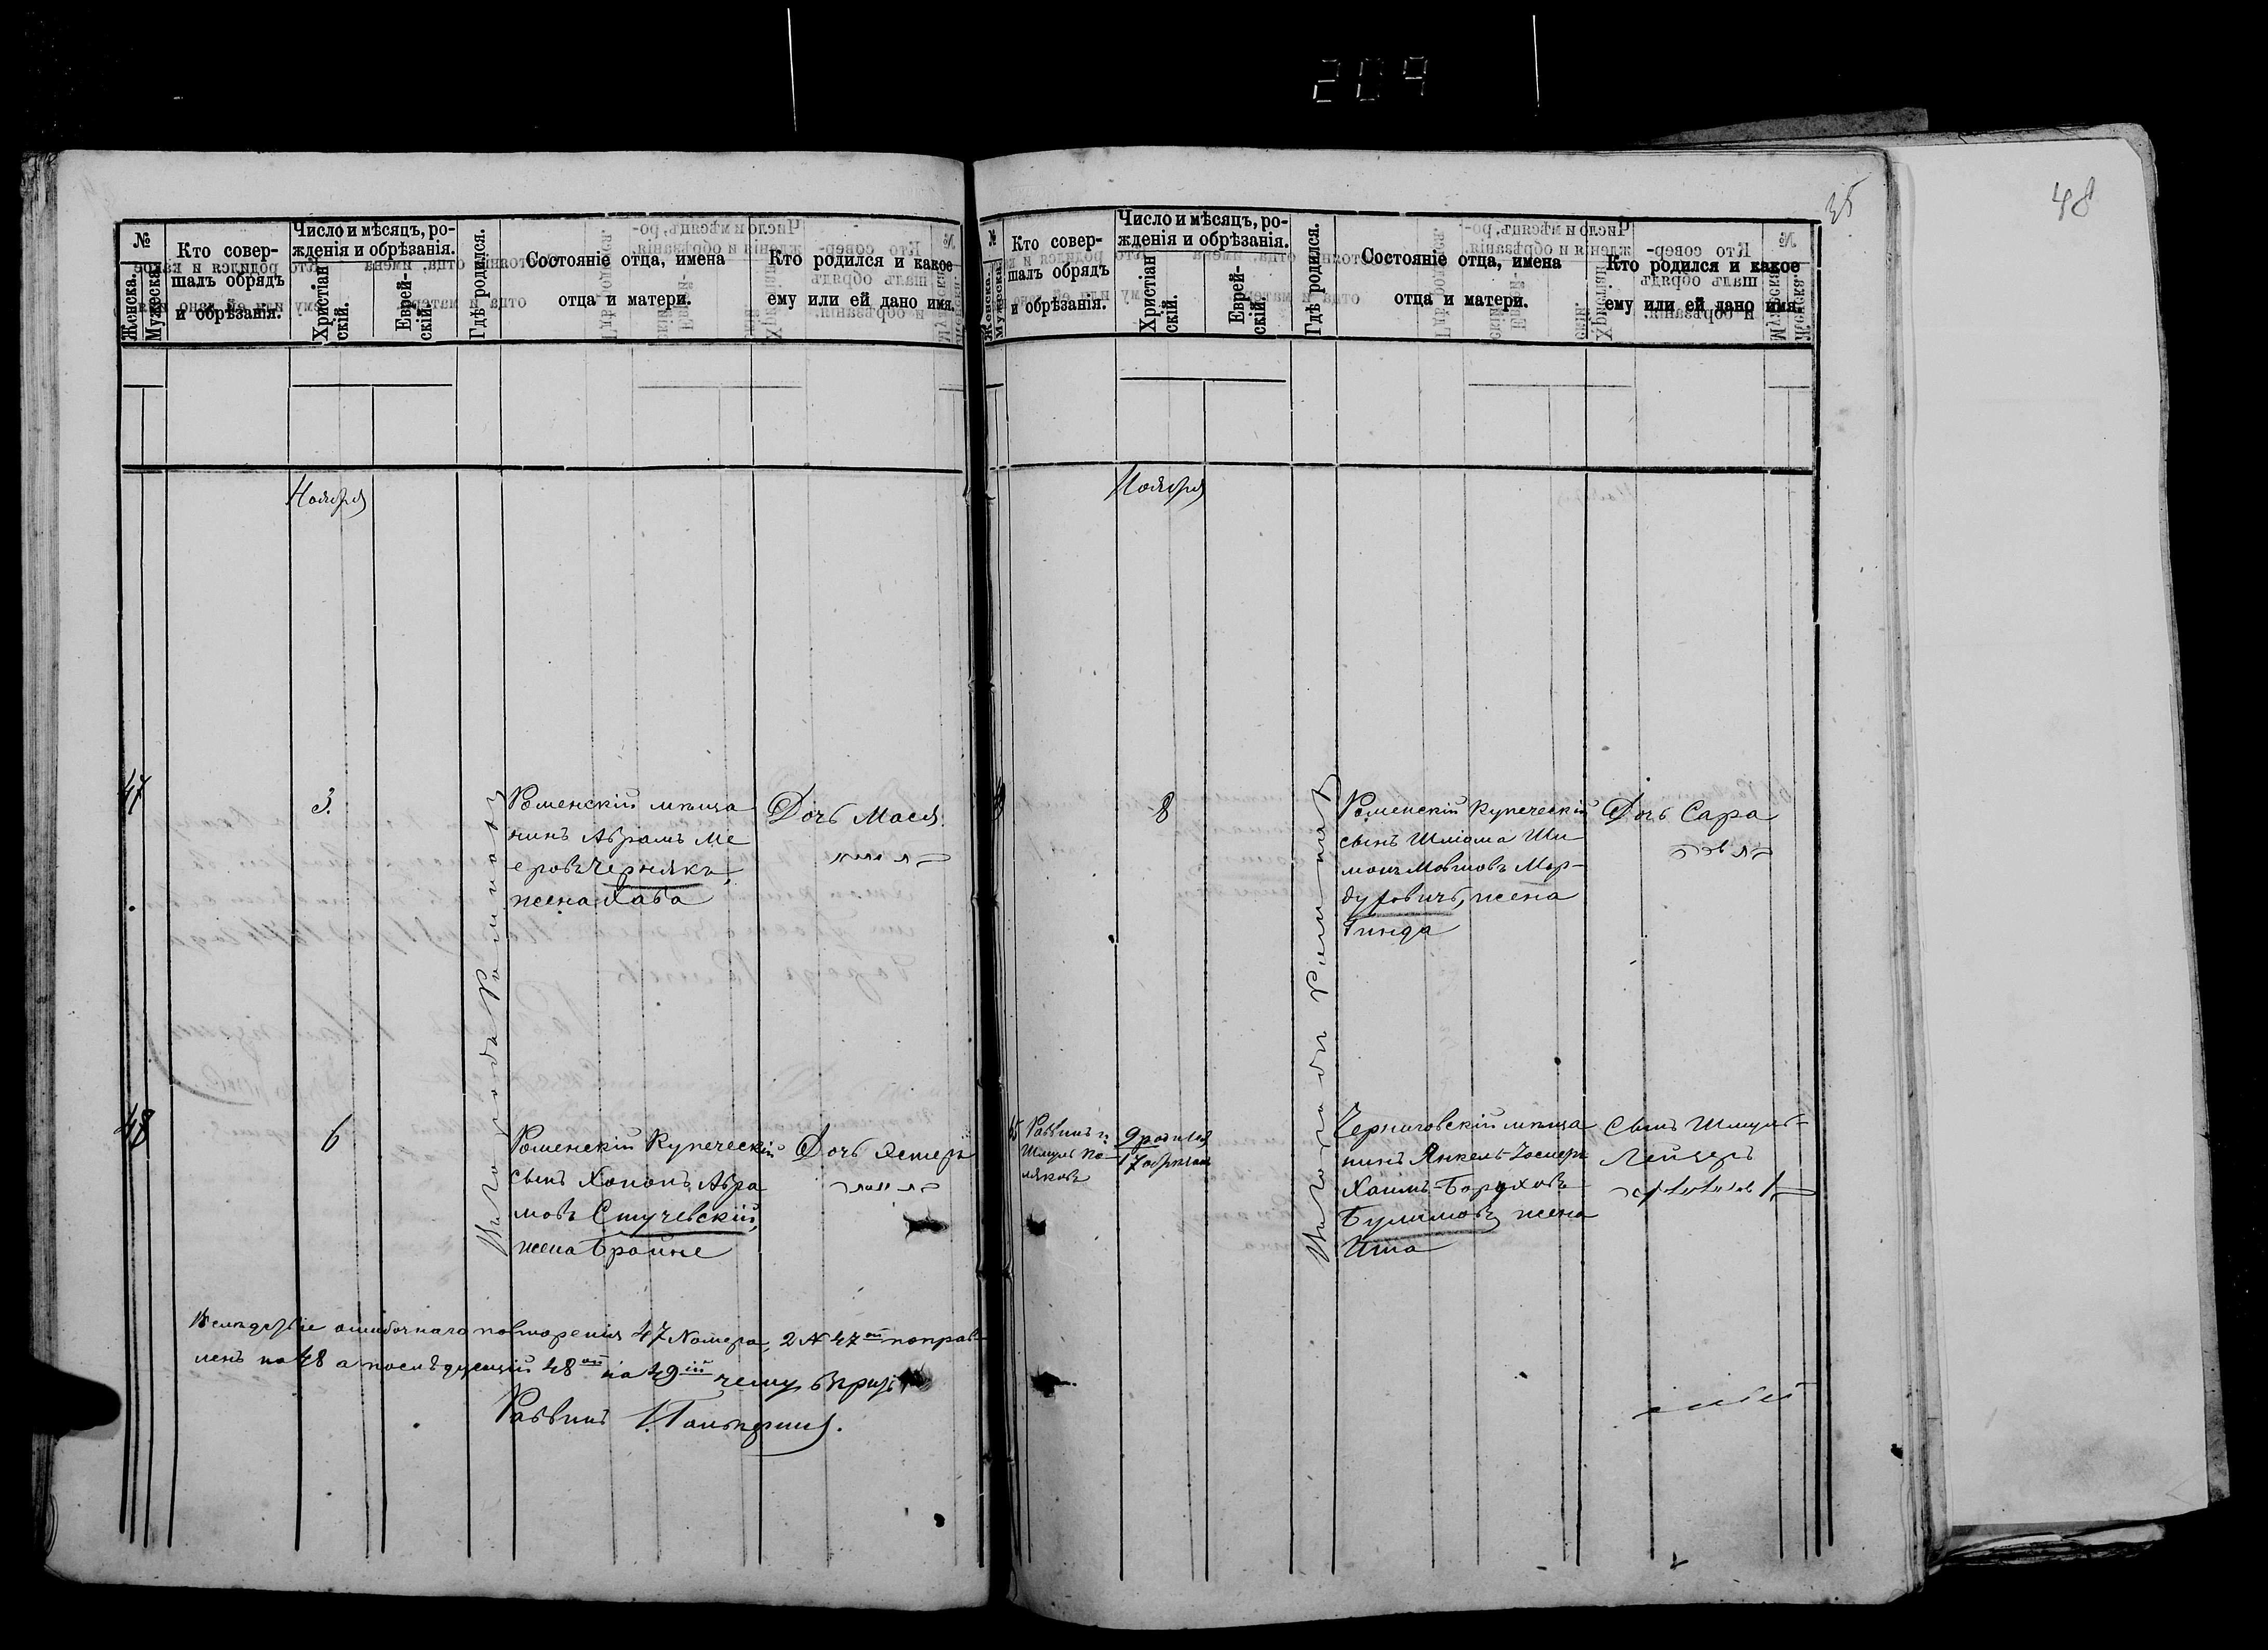 204
48
№
Женска.
Мужеска.
Кто совер-
шалъ обрядъ
и обрѣзанія.
Число и мѣсяцъ, ро-
жденія и обрѣзанія.
Христіан
скій.
Еврей-
скій.
Гдѣ родился.
Состояніе отца, имена
отца и матери.
Кто родился и какое
ему или ей дано имя.
Ноября
47
3.
Роменскій мѣща
нинъ Абрамъ Ме
еровъ Чернякъ,
жена Хава
Дочь Мася
48
6
Роменскій Купеческій
сынъ Хононъ Абра
мовъ Стучевскій,
жена Брайне
Дочь Эстеръ
Въ городѣ Ромнахъ
Вслѣдствіе ошибочнаго повторенія 47 Номера, 2 № 47ой поправ
ленъ на 48 а послѣдующій 48ой на 49ій чему
Раввинъ
№
Женска.
Мужеска.
Кто совер-
шалъ обрядъ
и обрѣзанія.
Число и мѣсяцъ, ро-
жденія и обрѣзанія.
Христіан
скій.
Еврей-
скій.
Гдѣ родился.
Состояніе отца, имена
отца и матери.
Кто родился и какое
ему или ей дано имя.
Ноября
8
Роменскій Купеческій
сынъ Шліома Ши
монъ Мовшовъ Мор-
духовичъ, жена
Гинда
Дочь Сара
Раввинъ и
Шмуль По-
ляковъ
9 родился
17 обрѣзанъ
Черниговскій мѣща
нинъ Янкель-
Хаимъ-Боруховъ
жена
Сынъ Шмуль-
Лейзеръ
Въ городѣ Ромнахъ